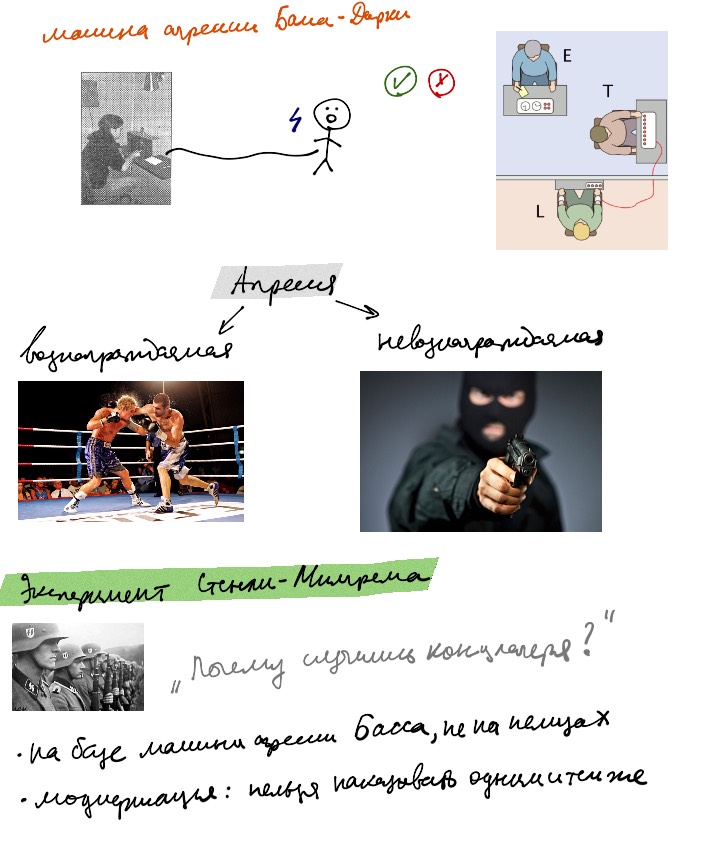 машина агрессии Басса-Дарки
E
T
L
Агрессия
вознаграждаемая
невознаграждаемая
Эксперимент Стенли-Милгрема
„Почему случились концлагеря?"
• на базе машины агрессии Басса, не на немцах
• модернизация: нельзя наказывать одним и тем же